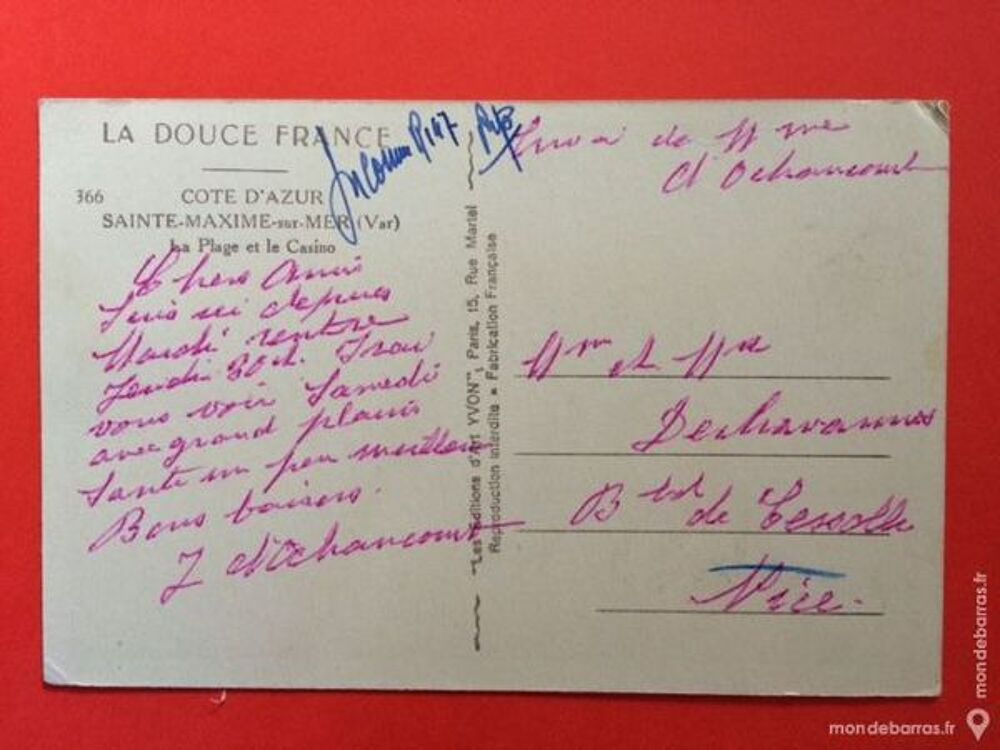 LA DOUCE FRANCE
366 COTE D'AZUR
SAINTE-MAXIME-sur-MER (Var)
La Plage et le Casino
Inconnu
Chers Amis
Suis ici depuis
Mardi rentre
Jeudi 30 ct. Irai
vous voir Samedi
avec grand plaisir
Santé un peu meilleure
Bons baisers.
J d'Ochancourt
"Les Editions d'Art YVON", Paris, 15, Rue Martel
Reproduction Interdite = Fabrication Française
Envoi de Mme
d'Ochancourt
Mr et Mme
Dechavannes
Bld de Cessole
Nice.
mondebarras.fr
mondebarras.fr